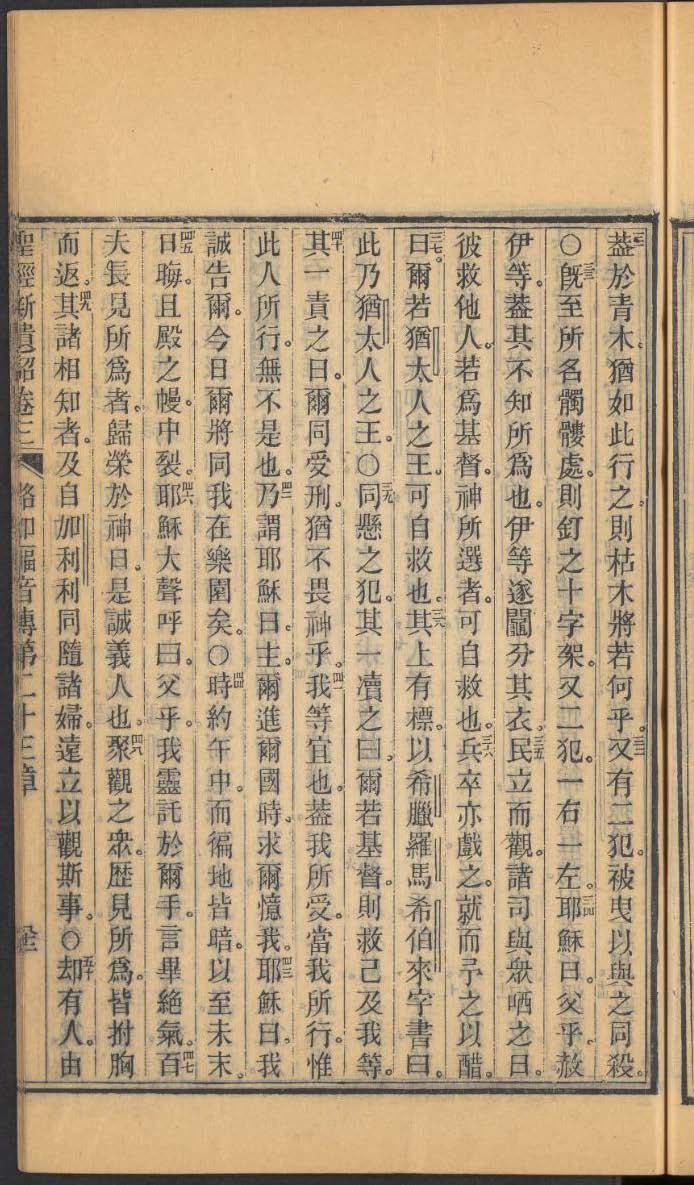 三一蓋於青木。猶如此行之。則枯木將若何乎。三二又有二犯。被曳以與之同殺。
〇三三旣至所名髑髏處。則釘之十字架。又二犯。一右一左。三四耶穌曰。父乎。赦
伊等。葢其不知所爲也。伊等遂鬮分其衣。三五民立而觀。諸司與衆哂之曰。
彼救他人。若爲基督。神所選者。可自救也。三六兵卒亦戲之。就而予之以醋。
三七曰。爾若猶太人之王。可自救也。三八其上有標。以希臘羅馬希伯來字書曰。
此乃猶太人之王。〇三九同懸之犯。其一凟之曰。爾若基督。則救己及我等。
四十其一責之曰。爾同受刑。猶不畏神乎。四一我等宜也。葢我所受。當我所行。惟
此人所行。無不是也。四二乃謂耶穌曰。主。爾進爾國時。求爾憶我。四三耶穌曰。我
誠告爾。今日爾將同我在樂園矣。〇四四時約午中。而徧地皆暗。以至未末。
四五日晦。且殿之幔。中裂。四六耶穌大聲呼曰。父乎。我靈託於爾手。言畢絕氣。四七百
夫長見所爲者。歸榮於神曰。是誠義人也。四八聚觀之衆。歷見所爲。皆拊胸
而返。四九其諸相知者。及自加利利同隨諸婦。遠立以觀斯事。〇五十却有人。由
聖經新遺詔卷三 路加福音傳第二十三章